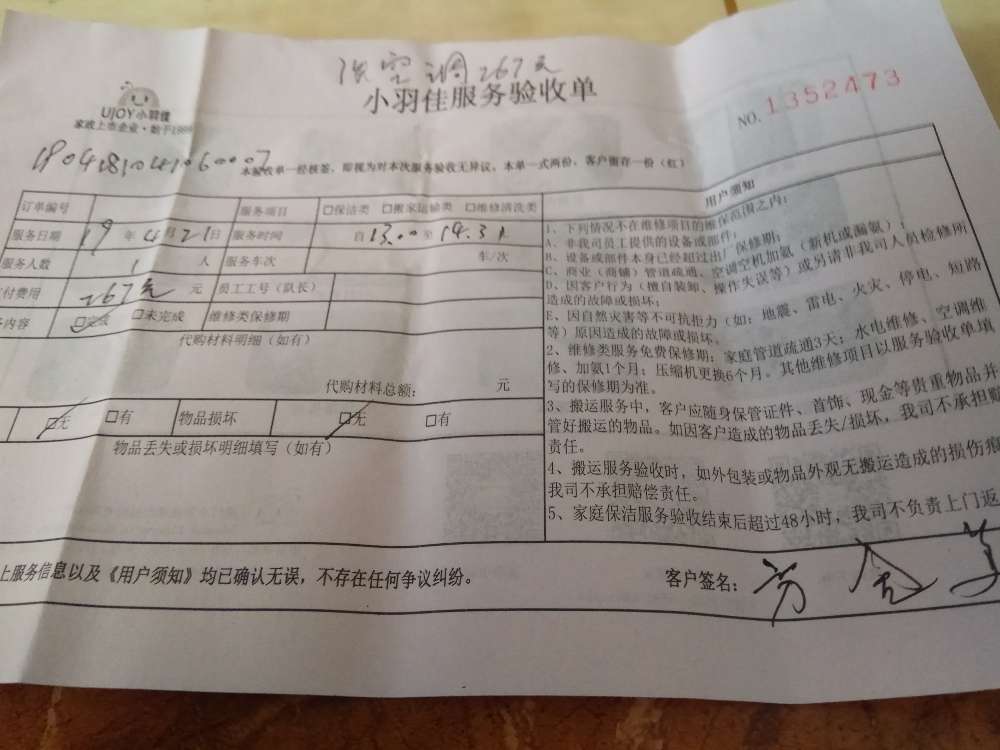 洗空调267元
小羽佳服务验收单
UJOY小羽佳
家政上市企业·始于1998
NO. 1352473
本验收单一经核签，即视为对本次服务验收无异议。本单一式两份，客户留存一份（红）
订单编号 服务项目 □保洁类 □搬家运输类 □维修清洗类
服务日期 19 年 4 月 21 日 服务时间 自 13.00 至 14.31
服务人数 1 人 服务车次 车/次
付费用 267元 元 员工工号（队长）
务内容 □完成 □未完成 维修类保修期
代购材料明细（如有）
代购材料总额： 元
□无 □有 物品损坏 □无 □有
物品丢失或损坏明细填写（如有）
用户须知
1、下列情况不在维修项目的维保范围之内：
A、非我司员工提供的设备或部件；
B、设备或部件本身已经超过出厂保修期；
C、商业（商铺）管道疏通、空调空机加氨（新机或漏氨）；
D、因客户行为（擅自装卸、操作失误等）或另请非我司人员检修所
造成的故障或损坏；
E、因自然灾害等不可抗拒力（如：地震、雷电、火灾、停电、短路
等）原因造成的故障或损坏。
2、维修类服务免费保修期：家庭管道疏通3天；水电维修、空调维
修、加氨1个月；压缩机更换6个月。其他维修项目以服务验收单填
写的保修期为准。
3、搬运服务中，客户应随身保管证件、首饰、现金等贵重物品并
管好搬运的物品。如因客户造成的物品丢失/损坏，我司不承担赔
责任。
4、搬运服务验收时，如外包装或物品外观无搬运造成的损伤痕
我司不承担赔偿责任。
5、家庭保洁服务验收结束后超过48小时，我司不负责上门返
上服务信息以及《用户须知》均已确认无误，不存在任何争议纠纷。
客户签名：